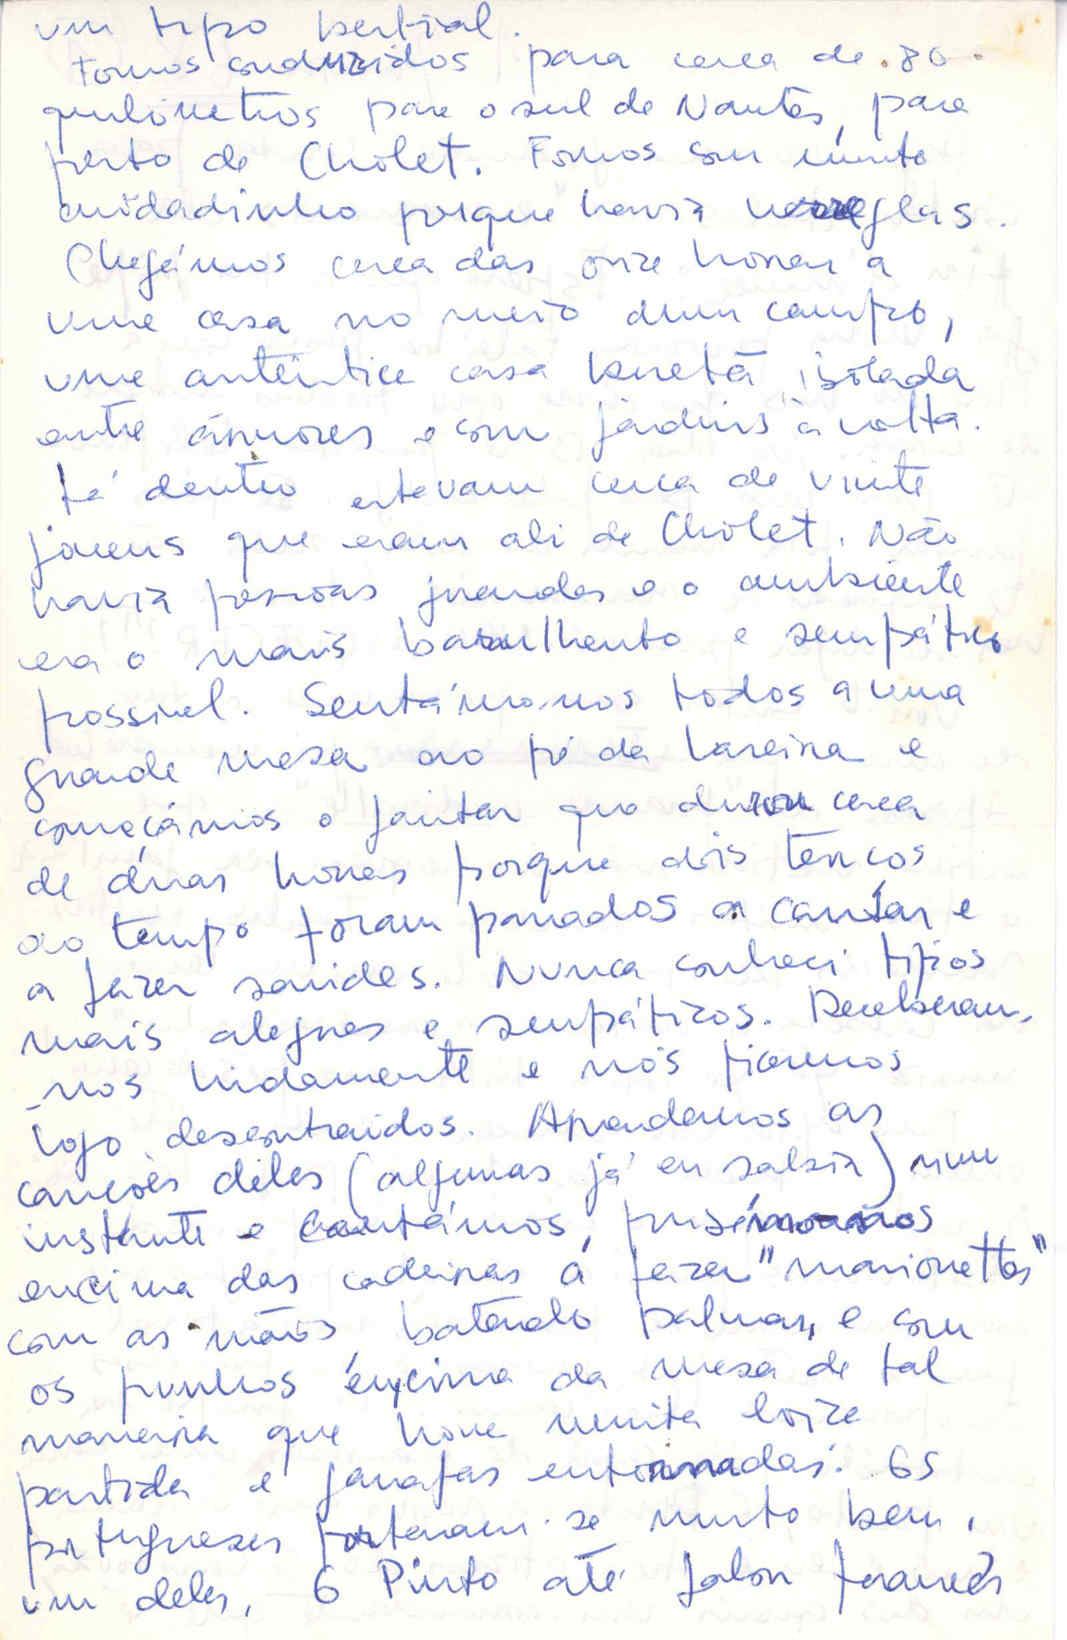 um tipo bestial.
Fomos conduzidos para cerca de 80
quilómetros para o sul de Nantes, para
perto de Cholet. Fomos com muito
cuidadinho porque havia verglas.
Chegámos cerca das onze horas a
uma casa no meio dum campo,
uma autêntica casa bretã isolada
entre árvores e com jardins à volta.
Lá dentro estavam cerca de vinte
jovens que eram ali de Cholet. Não
havia pessoas grandes e o ambiente
era o mais barulhento e simpático
possível. Sentámo-nos todos a uma
grande mesa ao pé da lareira e
começámos o jantar que durou cerca
de duas horas porque dois terços
do tempo foram passados a cantar e
a fazer saúdes. Nunca conheci tipos
mais alegres e simpáticos. Receberam-
-nos lindamente e nós ficámos
logo descontraídos. Aprendemos as
canções deles (algumas já eu sabia) num
instante e cantámos, pusémo-nos
encima das cadeiras a fazer "marionettes"
com as mãos, batendo palmas, e com
os punhos encima da mesa de tal
maneira que houve muita loiça
partida e garrafas entornadas. Os
portugueses portaram-se muito bem.
Um deles, o Pinto até falou francês